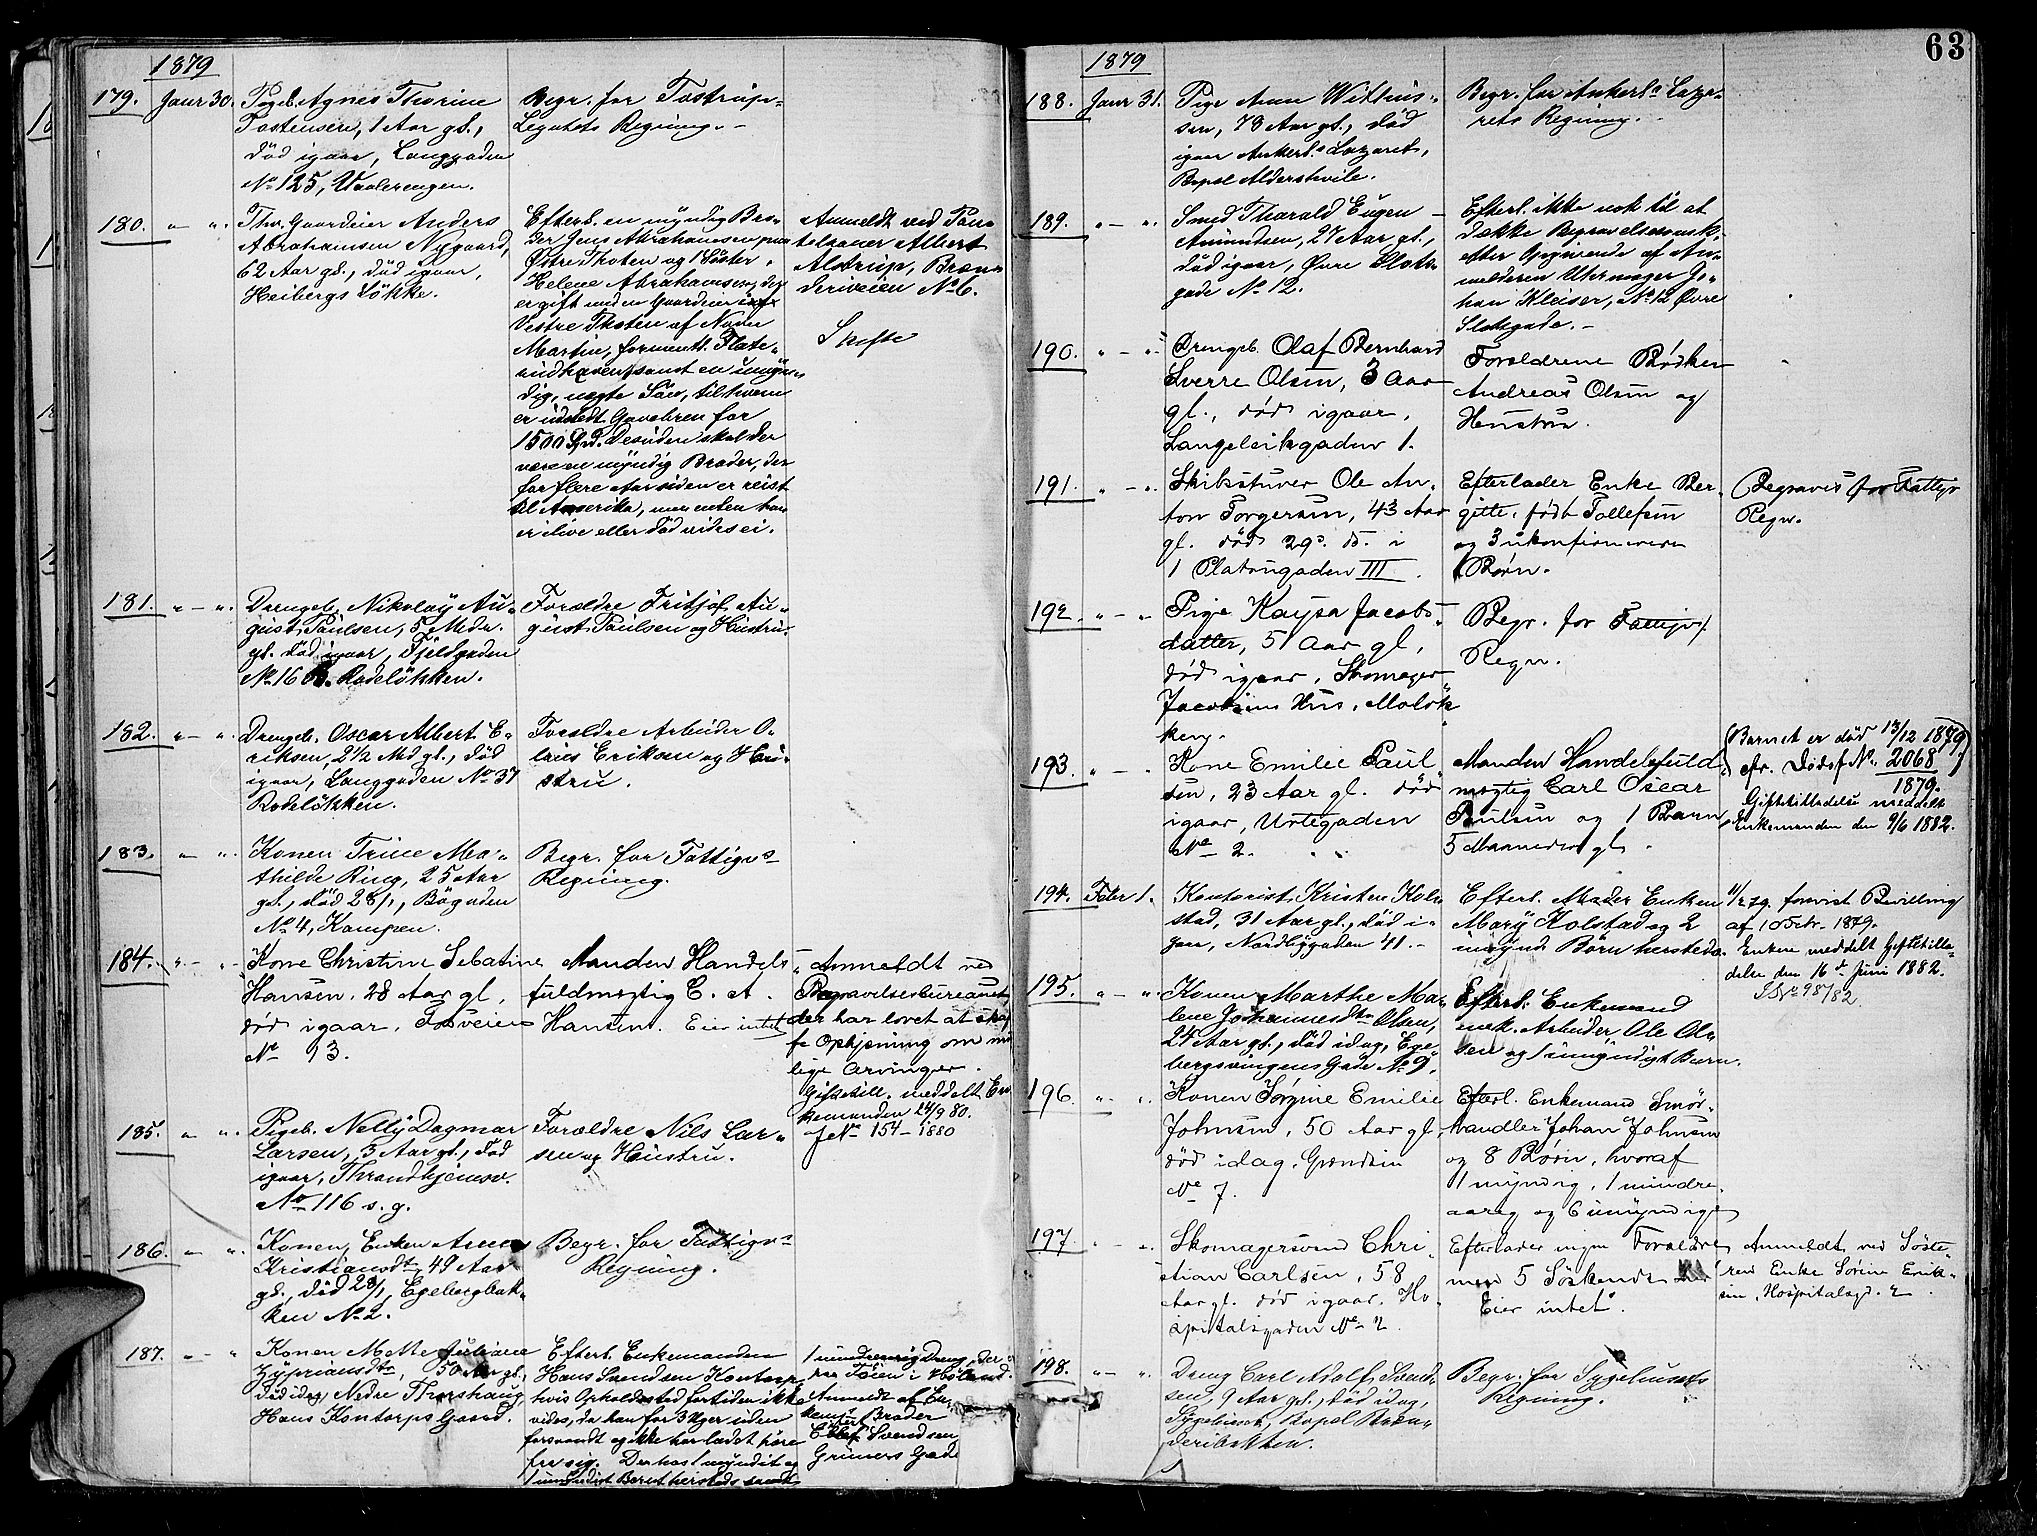 1879
179. Janr 30. Pigeb. Agnes Thorine
Tostensen, 1 Aar gl.,
död igaar, Langgaden
No 125, Vaalerengen.
Begr. for Tostrup-
Legatets Regning. -
180. " - " Fhv. Gaardeier Anders
Abrahamsen Nygaard,
62 Aar gl., död igaar,
Heibergs Løkke.
Efterl. en myndig Bro-
der Jens Abrahamsen paa
Østre Thoten og 1 Søster
Helene Abrahamsen, der
er gift med en Gaardeier
Vestre Thoten af Navn
Martin, formentl. Flate-
samt en umyn-
dig, uægte Søn, til hvem
er udstedt Gavebrev for
1500 Spd. Desuden skal der
være en myndig Broder, der
for flere Aar siden er reist
til Amerika, men enten han
er ilive eller död vides ei.
Anmeldt ved Pan-
telaaner Albert
Alstrup, Bran-
deriveien No 6.
Skifte
181. " - " Drengeb. Nikolay Au-
gust Paulsen, 5 Mdr.
gl. död igaar, Fjeldgaden
No 16 B. Rodeløkken.
Forældre Fritjof Au-
gust Paulsen og Hustru.
182. " - " Drengeb. Oscar Albert E-
riksen, 2½ Md gl., död
igaar, Langgaden No 37
Rodeløkken.
Forældre Arbeider O-
laus Eriksen og Hu-
stru.
183. " - " Konen Trine Ma-
thilde Ring, 25 Aar
gl., död 28/1, Bøgaden
No 4, Kampen.
Begr. for Fattigvs
Regning.
184. " - " Kone Christine Sebatine
Hansen, 28 Aar gl,
död igaar, Fosveien
No 13.
Manden Handels
fuldmægtig C. A.
Hansen. Eier intet
Anmeldt ved
Begravelsesbureauet
der har lovet at skaf
fe Oplysning om mu
lige Arvinger.
Giftetill. meddelt En
kemanden 24/9 80.
J No 154 - 1880
185. " - " Pigeb. Nelly Dagmar
Larsen, 3 Aar gl., död
igaar, Throndhjemsv.
No 116 s. g.
Forældre Nils Lar-
sen og Hustru.
186. " - " Konen, Enken Anne
Kristiansdtr, 49 Aar
gl., död 28/1, Egebergbak-
ken No 2.
Begr. for Fattigvs
Regning.
187. " - " Konen Mette Juliane
Zypriansdtr, 50 Aar gl.,
död idag Nedre Thorshaug,
Hans Kontorps Gaard.
Efterl. Enkemanden
Hans Svendsen Kontorp,
hvis Opholdssted fortiden ikke
vides, da han for 3 Uger siden
forsvandt og ikke har ladet høre
fra sig. Derhos 1 myndigt og
1 umyndigt Barn herstedes samt
1 mindreaarig Dreng, der er
paa Føien i Høland.
Anmeldt af En-
kems Broder
Svendsen
Grüners Gade
63
1879
188. Janr 31. Pige Anne Wilthus-
sen, 78 Aar gl., död
igaar Ankerl. Lazaret,
Bopæl Aldershvile.
Begr. for Ankerls Laza-
rets Regning.
189. " - " Smed Tharald Eugen
Amundsen, 27 Aar gl.,
död igaar, Øvre Slots-
gade No 12.
Efterl. ikke nok til at
dække Begravelsesomk.
efter Opgivende af An-
melderen Uhrmager Jo-
han Kleiser, No 12 Øvre
Slotsgade. -
190. " - " Drengeb. Olaf Bernhard
Sverre Olsen, 3 Aar
gl., död igaar,
Langeleikgaden 1.
Forældrene Bødker
Andreas Olsen og
Hustru.
191. " - " Skibsstuver Ole An-
ton Torgersen, 43 Aar
gl. död 29s ds. i
1 Platousgaden III.
Efterlader Enke Ber-
gitte, født Tollefsen
og 3 ukonfirmerede
Børn.
Begraves for Fattigv
Regn.
192. " - " Pige Kaysa Jacobs-
datter, 51 Aar gl,
död igaar, Skomager
Jacobsens Hus, Maløk
ken.
Begr. for Fattigv.
Regn.
193. " - " Kone Emilie Paul
sen, 23 Aar gl. död
igaar, Urtegaden
No 2.
Manden Handelsfuld
mægtig Carl Oscar
Paulsen og 1 Barn
5 Maaneder gl.
(Barnet er död 13/12 1879
fr. Dödsf No 2068
1879.
Giftetilladelse meddelt
Enkemanden den 9/6 1882.
194. Febr 1. Kontorist Kristen Kol-
stad, 31 Aar gl., död i-
gaar, Nordbygaden 41. -
Efterl. Moder Enken
Mary Kolstad og 2
umynd. Børn herstedes.
11/2 79. forevist Bevilling
af 10 Febr. 1879.
Enken meddelt Giftetilla-
delse den 16de Juni 1882.
S No 98/82.
195. " - " Konen Marthe Ma-
lene Johannesdtr Olsen,
24 Aar gl., död idag, Ege-
bergsvingens Gade No 9.
Efterl. Enkemand
mek. Arbeider Ole Ol-
sen og 1 umyndigt Barn.
196. " - " Konen Jørgine Emilie
Johnsen, 50 Aar gl.
död idag, Grændsen
No 7.
Efterl. Enkemand Smör-
handler Johan Johnsen
og 8 Børn, hvoraf
1 myndig, 1 mindre-
aarig og 6 umyndige
197. " - " Skomagersvend Chri-
stian Carlsen, 58
Aar gl. död igaar, Ho-
spitalsgaden No 2
Efterlader ingen Forældre
men 5 Søskende
Eier intet.
Anmeldt ved Søste-
ren Enke Sørine Erik-
sen, Hospitalsgd. 2
198. " - " Dreng Carl Adolf Svend-
sen, 9 Aar gl., död idag,
Sygehuset, Bopæl Bræn-
deribakken.
Begr. for Sygehusets
Regning.